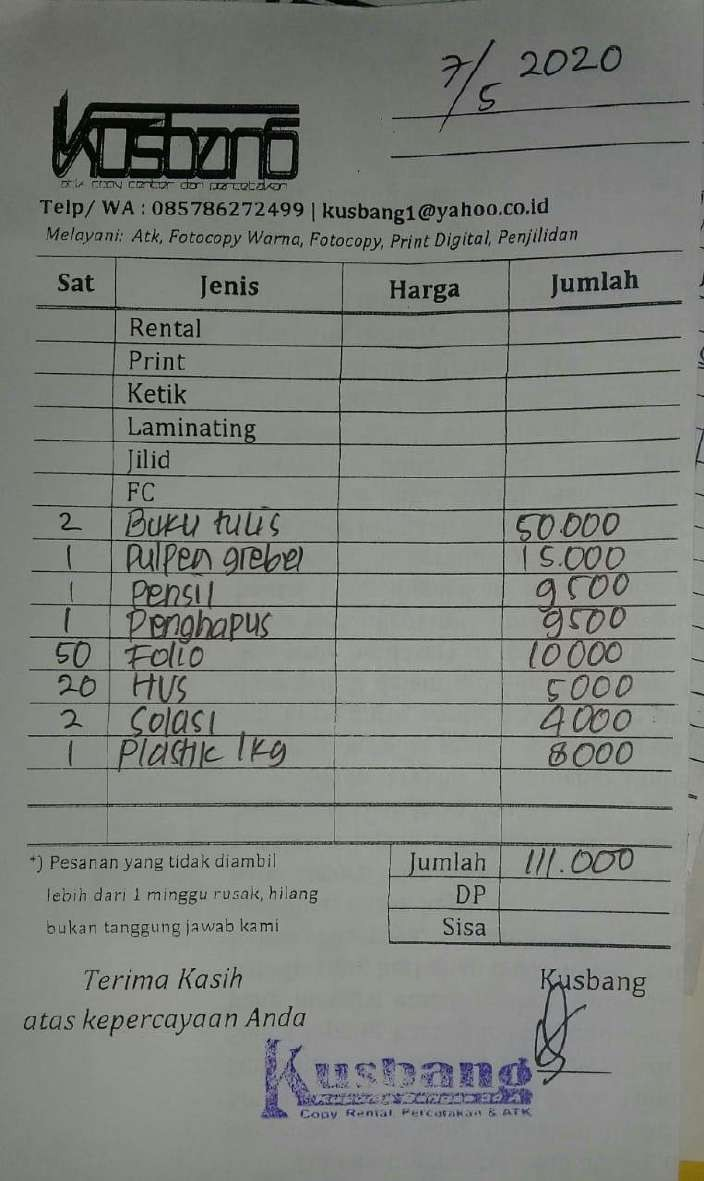 7/5 2020
Kusbang
atk copy center dan percetakan
Telp/ WA : 085786272499 | kusbang1@yahoo.co.id
Melayani: Atk, Fotocopy Warna, Fotocopy, Print Digital, Penjilidan
Sat Jenis Harga Jumlah
Rental
Print
Ketik
Laminating
Jilid
FC
2 Buku tulis 50.000
1 Pulpen grebel 15.000
1 Pensil 9500
1 Penghapus 9500
50 Folio 10000
20 HVS 5000
2 Solasi 4000
1 Plastik 1kg 8000
*) Pesanan yang tidak diambil Jumlah 111.000
lebih dari 1 minggu rusak, hilang DP
bukan tanggung jawab kami Sisa
Terima Kasih Kusbang
atas kepercayaan Anda
Kusbang
Copy Rental Percetakan & ATK